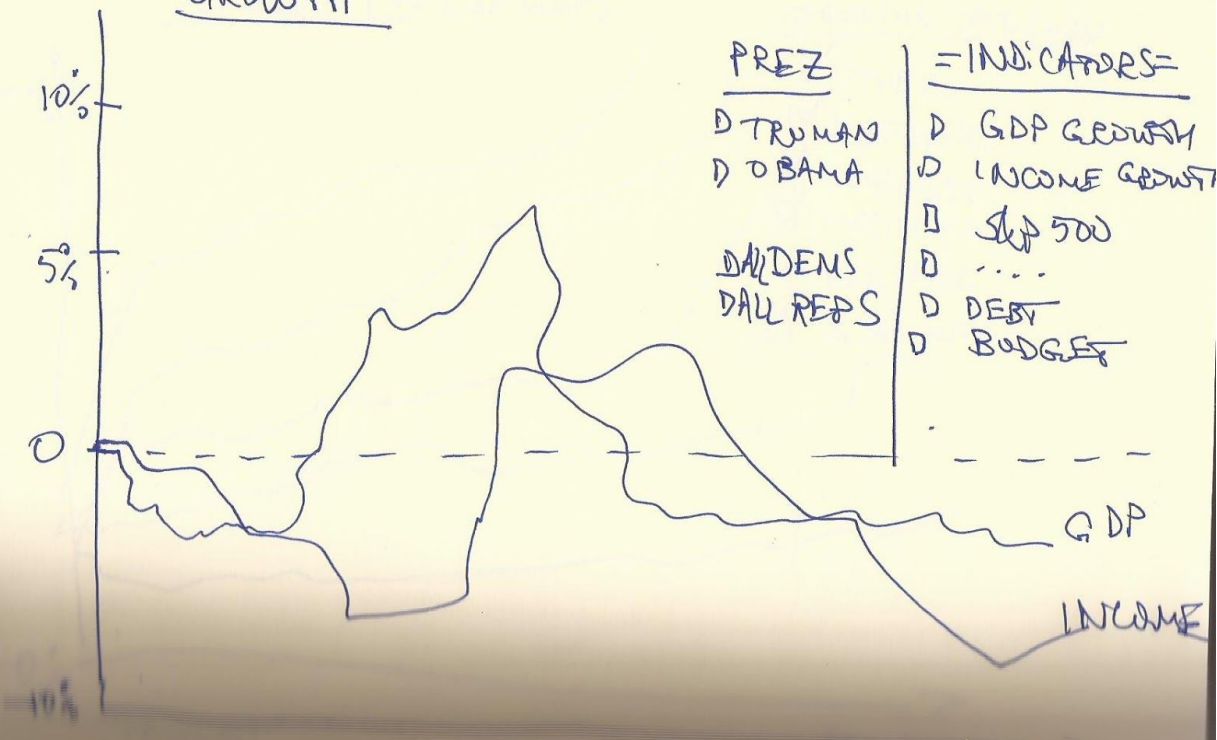 GROWTH
10%
5%
0
-10%
PREZ
D TRUMAN
D OBAMA
D ALL DEMS
D ALL REPS
=INDICATORS=
D GDP GROWTH
D INCOME GROWT
D S&P 500
D ....
D DEBT
D BUDGET
GDP
INCOME